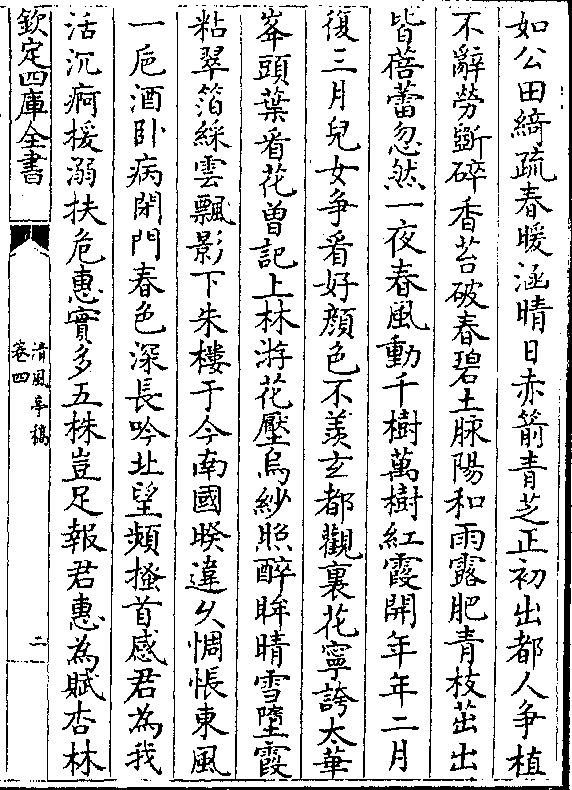 如公田綺疏春暖涵晴日赤箭青芝正初出都人争植
不辭勞斸碎香苔破春碧土脉陽和雨露肥青枝茁出
皆蓓蕾忽然一夜春風動千樹萬樹紅霞開年年二月
復三月兒女争看好顔色不羨玄都觀裏花寧誇太華
峯頭葉看花曽記上林游花壓烏紗照醉眸晴雪墮霞
粘翠箔綵雲飄影下朱樓于今南國暌違久惆悵東風
一巵酒卧病閉門春色深長吟北望頻搔首感君為我
活沉痾援溺扶危惠實多五株豈足報君惠為賦杏林
欽定四庫全書
清風亭稿
卷四
二